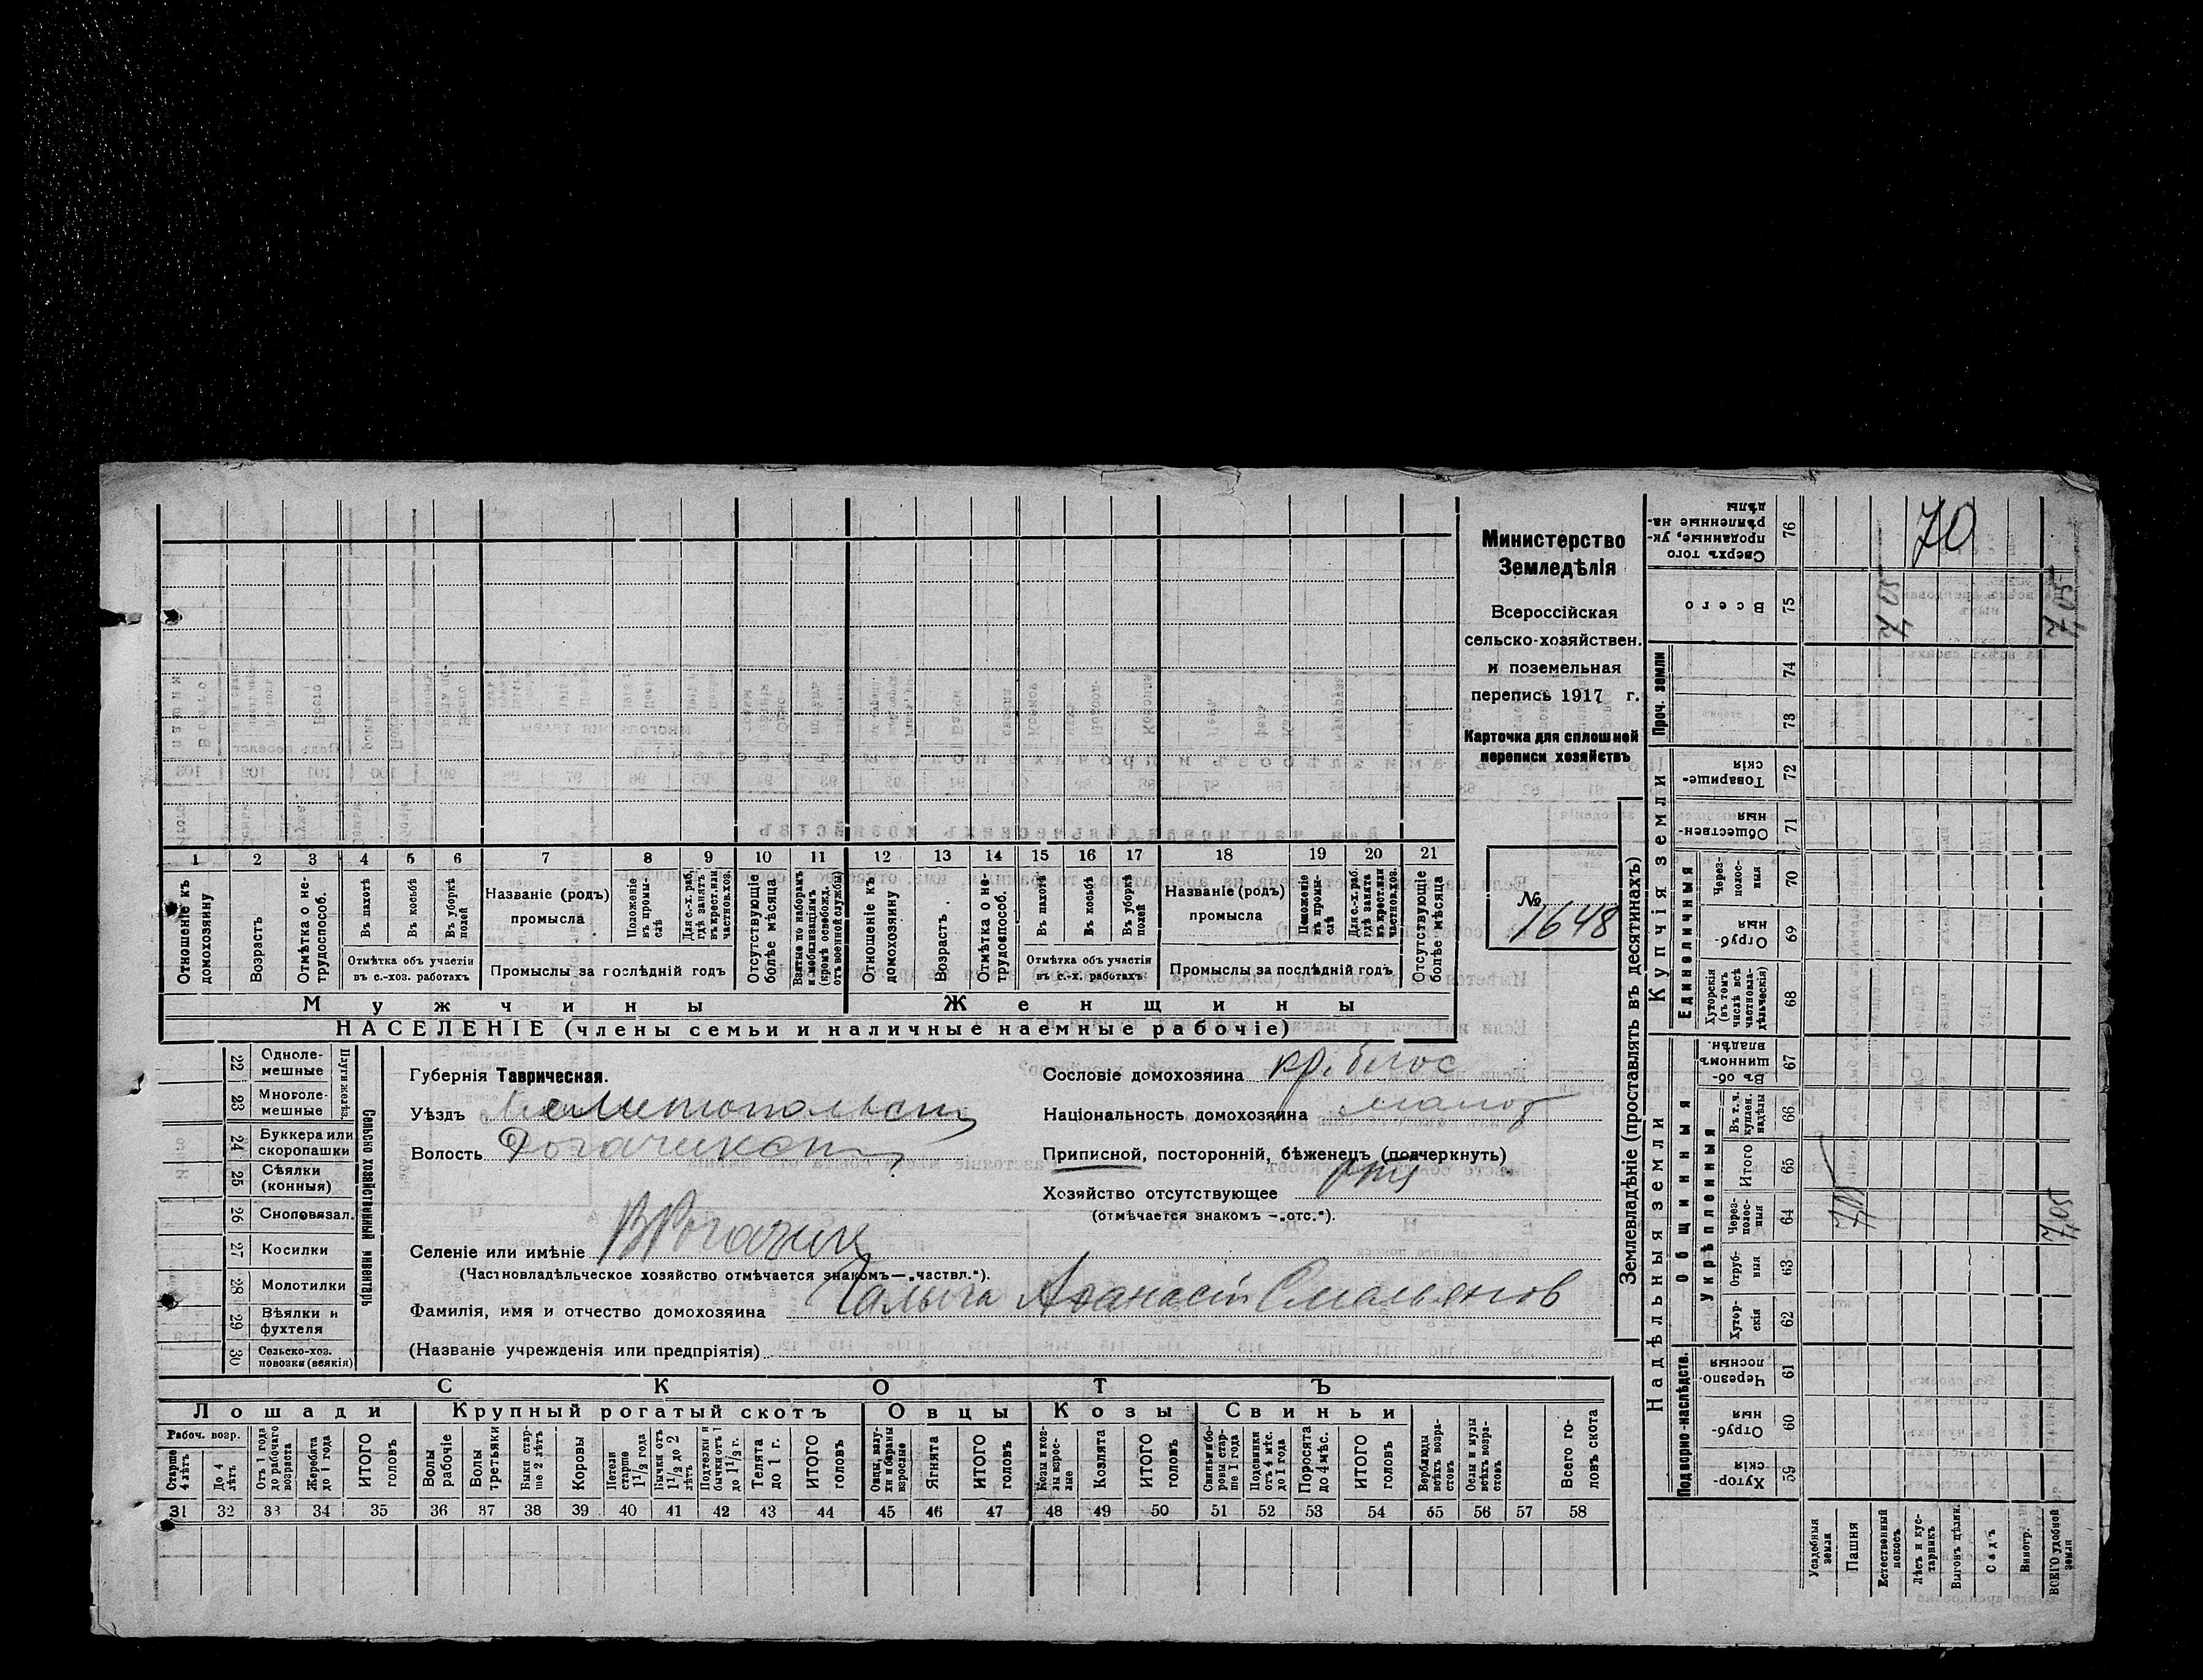 Министерство
Земледѣлія
Всероссійская
сельско-хозяйствен.
и поземельная
перепись 1917 г.
Карточка для сплошной
переписи хозяйствъ
№
1648
1 2 3 4 5 6 7 8 9 10 11 12 13 14 15 16 17 18 19 20 21
Отношеніе къ домохозяину
Возрастъ
Отмѣтка о не-трудоспособ.
Въ пахотѣ
Въ косьбѣ
Въ уборкѣ полей
Отмѣтка объ участіи въ с.-хоз. работахъ
Названіе (родъ) промысла
Положеніе въ промы-слѣ
Для с.-х. раб. гдѣ занятъ въ крест. или частнов. хоз.
Промыслы за послѣдній годъ
Отсутствующіе болѣе мѣсяца
Взятые по наборамъ и мобилизаціямъ (кромѣ освобожд. отъ военной службы)
Отношеніе къ домохозяину
Возрастъ
Отмѣтка о не-трудоспособ.
Въ пахотѣ
Въ косьбѣ
Въ уборкѣ полей
Отмѣтка объ участіи въ с.-х. работахъ
Названіе (родъ) промысла
Положеніе въ промы-слѣ
Для с.-х. раб. гдѣ занята въ крест. или частнов. хоз.
Промыслы за послѣдній годъ
Отсутствующіе болѣе мѣсяца
Мужчины
Женщины
НАСЕЛЕНІЕ (члены семьи и наличные наемные рабочіе)
22 Однолемешные
23 Многолемешные
24 Буккера или скоропашки
25 Сѣялки (конныя)
26 Сноповязал.
27 Косилки
28 Молотилки
29 Вѣялки и фухтеля
30 Сельско-хоз. повозки (всякія)
Сельско хозяйственный инвентарь
Губернія Таврическая.
Уѣздъ Мелитопольск
Волость Рогачикск
Селеніе или имѣніе В Рогачик
(Частновладѣльческое хозяйство отмѣчается знакомъ—„частвл.“).
Фамилія, имя и отчество домохозяина Чалыга Афанасій
(Названіе учрежденія или предпріятія)
Сословіе домохозяина
Національность домохозяина малор
Приписной, посторонній, бѣженец (подчеркнуть)
Хозяйство отсутствующее
(отмѣчается знакомъ —„отс.“).
СКОТЪ
Лошади
Крупный рогатый скотъ
Овцы
Козы
Свиньи
Рабоч. возр.
Старше 4 лѣтъ
До 4 лѣтъ
Отъ 1 года до рабочаго возраста
Жеребята до 1 года
ИТОГО головъ
Волы рабочіе
Волы третьяки
Быки стар-ше 2 лѣтъ
Коровы
Нетели старше 1 1/2 года
Бычки отъ 1 1/2 до 2 лѣтъ
Подтелки и бычки отъ 1 до 1 1/2 г.
Телята до 1 г.
ИТОГО головъ
Овцы, валу-хи и бараны взрослые
Ягнята
ИТОГО головъ
Козы и коз-лы взрос-лые
Козлята
ИТОГО головъ
Свиньи и бо-ровы стар-ше 1 года
Подсвинки отъ 4 мѣс. до 1 года
Поросята до 4 мѣс.
ИТОГО головъ
Верблюды всѣхъ возра-стовъ
Ослы и мулы всѣхъ возра-стовъ
Всего го-ловъ скота
31 32 33 34 35 36 37 38 39 40 41 42 43 44 45 46 47 48 49 50 51 52 53 54 55 56 57 58
Землевладѣніе (проставлять въ десятинахъ)
Купчія земли
Надѣльныя земли
Сверхъ того проданные, ук-рѣпленные на-дѣлы 76
Всего 75
Проч. земли 74 73
Товарище-скія 72
Обществен-ныя 71
Единоличныя
Через-полос-ныя 70
Отруб-ныя 69
Хуторскія (въ томъ числѣ всѣ частновла-дѣльческія) 68
Общинныя
Въ об-щинномъ владѣн. 67
Укрѣпленныя
Въ т. ч. куплен. надѣлы 66
Итого 65
Через-полос-ныя 64
Отруб-ныя 63
Хутор-скія 62
Подворно-наслѣдств.
Черезпо-лосныя 61
Отруб-ныя 60
Хутор-скія 59
Усадебныя земли
Пашня
Естественный покосъ
Лѣсъ и кус-тарникъ
Выгонъ цѣлин.
Садъ
Виногр.
ВСЕГО удобной земли
70
7,05
7,05
7,05
7,05